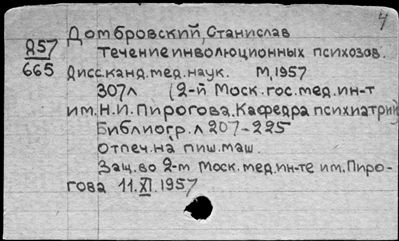 4
Домбровский, Станислав
Д57
665
Течение инволюционных психозов.
Дисс.канд.мед.наук. М, 1957
307л (2-й Моск.гос.мед.ин-т
им.Н.И.Пирогова.Кафедра психиатрий
Библиогр.л 207-225
Отпеч.на пиш.маш.
Защ.во 2-м Моск.мед.ин-те им.Пиро-
гова 11.XI.1957